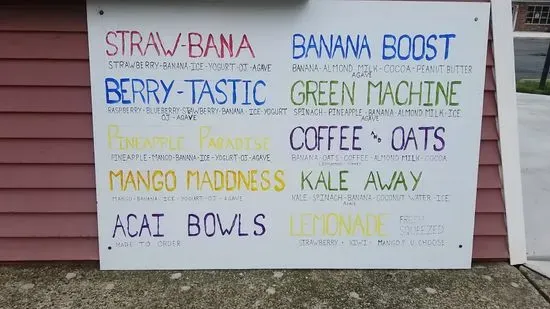 STRAW-BANA
STRAWBERRY-BANANA-ICE-YOGURT-OJ-AGAVE
BERRY-TASTIC
RASPBERRY-BLUEBERRY-STRAWBERRY-BANANA-ICE-YOGURT
OJ-AGAVE
PINEAPPLE PARADISE
PINEAPPLE-MANGO-BANANA-ICE-YOGURT-OJ-AGAVE
MANGO MADDNESS
MANGO-BANANA-ICE-YOGURT-OJ-AGAVE
ACAI BOWLS
MADE TO ORDER
BANANA BOOST
BANANA-ALMOND MILK-COCOA-PEANUT BUTTER
AGAVE
GREEN MACHINE
SPINACH-PINEAPPLE-BANANA-ALMOND MILK-ICE
AGAVE
COFFEE AND OATS
BANANA-OATS-COFFEE-ALMOND MILK-COCOA
KALE AWAY
KALE SPINACH-BANANA-COCONUT WATER-ICE
AGAVE
LEMONADE FRESH SQUEEZED
STRAWBERRY-KIWI-MANGO? U CHOOSE